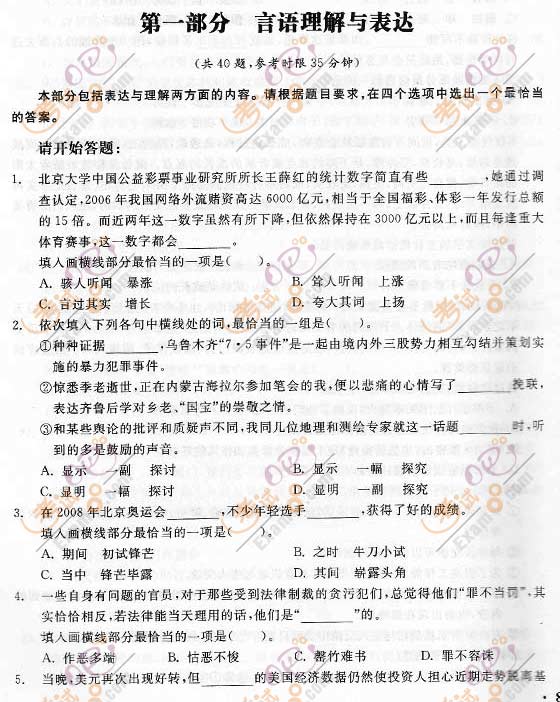 第一部分 言语理解与表达
(共40题,参考时限35分钟)
本部分包括表达与理解两方面的内容。请根据题目要求,在四个选项中选出一个最恰当
的答案。
请开始答题:
1. 北京大学中国公益彩票事业研究所所长王薛红的统计数字简直有些________,她通过调
查认定,2006年我国网络外流赌资高达6000亿元,相当于全国福彩、体彩一年发行总额
的15倍。而近两年这一数字虽然有所下降,但依然保持在3000亿元以上,而且每逢重大
体育赛事,这一数字都会________。
填入画横线部分最恰当的一项是( )。
A. 骇人听闻 暴涨 B. 耸人听闻 上涨
C. 言过其实 增长 D. 夸大其词 上扬
2. 依次填入下列各句中横线处的词,最恰当的一组是( )。
①种种证据________,乌鲁木齐“7·5事件”是一起由境内外三股势力相互勾结并策划实
施的暴力犯罪事件。
②惊悉季老逝世,正在内蒙古海拉尔参加笔会的我,便以悲痛的心情写了________挽联,
表达齐鲁后学对乡老、“国宝”的崇敬之情。
③和某些舆论的批评和质疑声不同,我同几位地理和测绘专家就这一话题________时,听
到的多是鼓励的声音。
A. 显示 一副 探讨 B. 显示 一幅 探究
C. 显明 一幅 探讨 D. 显明 一副 探究
3. 在2008年北京奥运会________,不少年轻选手________,获得了好的成绩。
填入画横线部分最恰当的一项是( )。
A. 期间 初试锋芒 B. 之时 牛刀小试
C. 当中 锋芒毕露 D. 其间 崭露头角
4. 一些自身有问题的官员,对于那些受到法律制裁的贪污犯们,总觉得他们“罪不当罚”,其
实恰恰相反,若法律能当天理用的话,他们是“________”的。
填入画横线部分最恰当的一项是( )。
A. 作恶多端 B. 怙恶不悛 C. 罄竹难书 D. 罪不容诛
5. 当晚,美元再次出现好转,但________的美国经济数据仍然使投资人担心近期走势脱离基